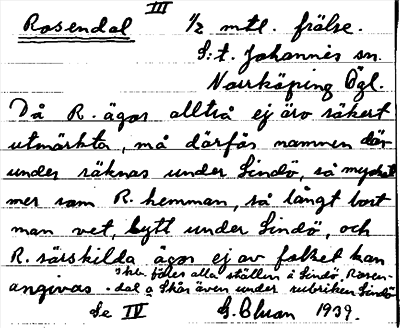 III
Rosendal 1/2 mtl. frälse.
S:t. Johannis sn.
Norrköping Ögl.
Då R. ägor alltså ej äro säkert
utmärkta, må därför namnen där
under räknas under Lindö, så mycket
mer som R. hemman, så långt bort
man vet, lytt under Lindö, och
R. särskilda ägor ej av folket kan
angivas. Skr. föres alla ställen å Lindö, Rosen-
dal o Skår även under rubriken Lindö
Se IV 1939.